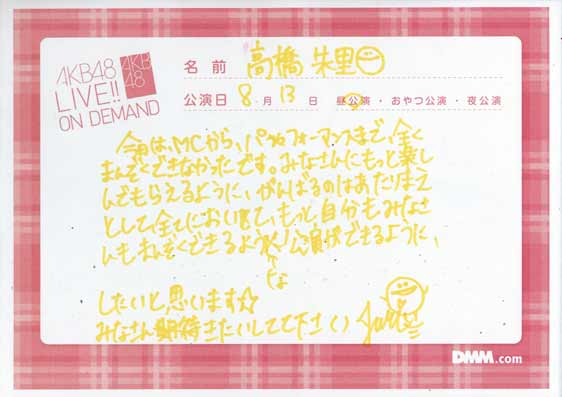 AKB48
LIVE!!
ON DEMAND
AKB
48
名前 高橋朱里
公演日 8月13日 昼公演・おやつ公演・夜公演
今日は、MCから、パフォーマンスまで、全く
まんぞくできなかったです。みなさんにもっと楽し
んでもらえるように、がんばるのはあたりまえ
として全てにおいて、もっと自分もみなさ
んもまんぞくできるような公演ができるように、
したいと思います☆
みなさん期待きたいしてて下さい
DMM.com